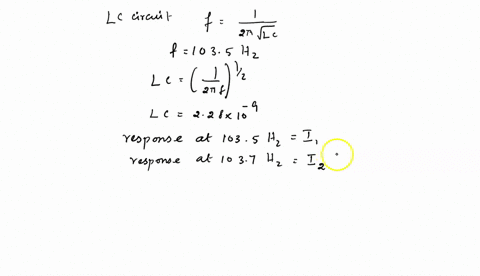 LC circuit f = 1 / 2π√LC
f = 103.5 Hz
LC = (1 / 2πf)^1/2
LC = 2.28 × 10^-9
response at 103.5 Hz = I₁
response at 103.7 Hz = I₂